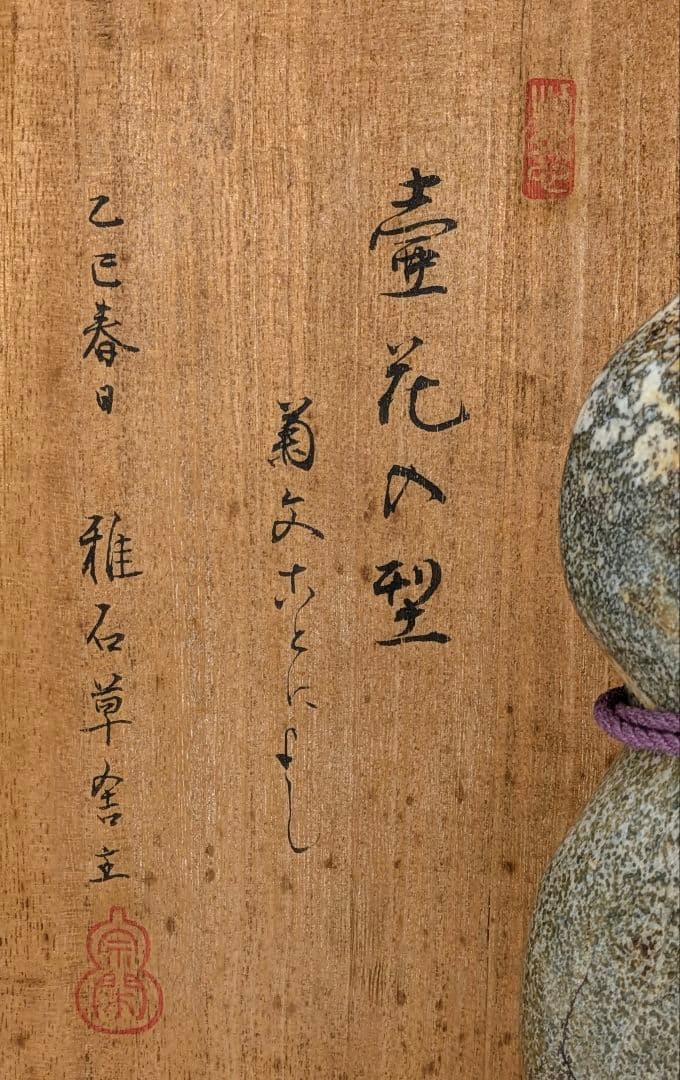 壷花入型
菊文ことによし
乙巳春日 雅石草舎主
宗閑